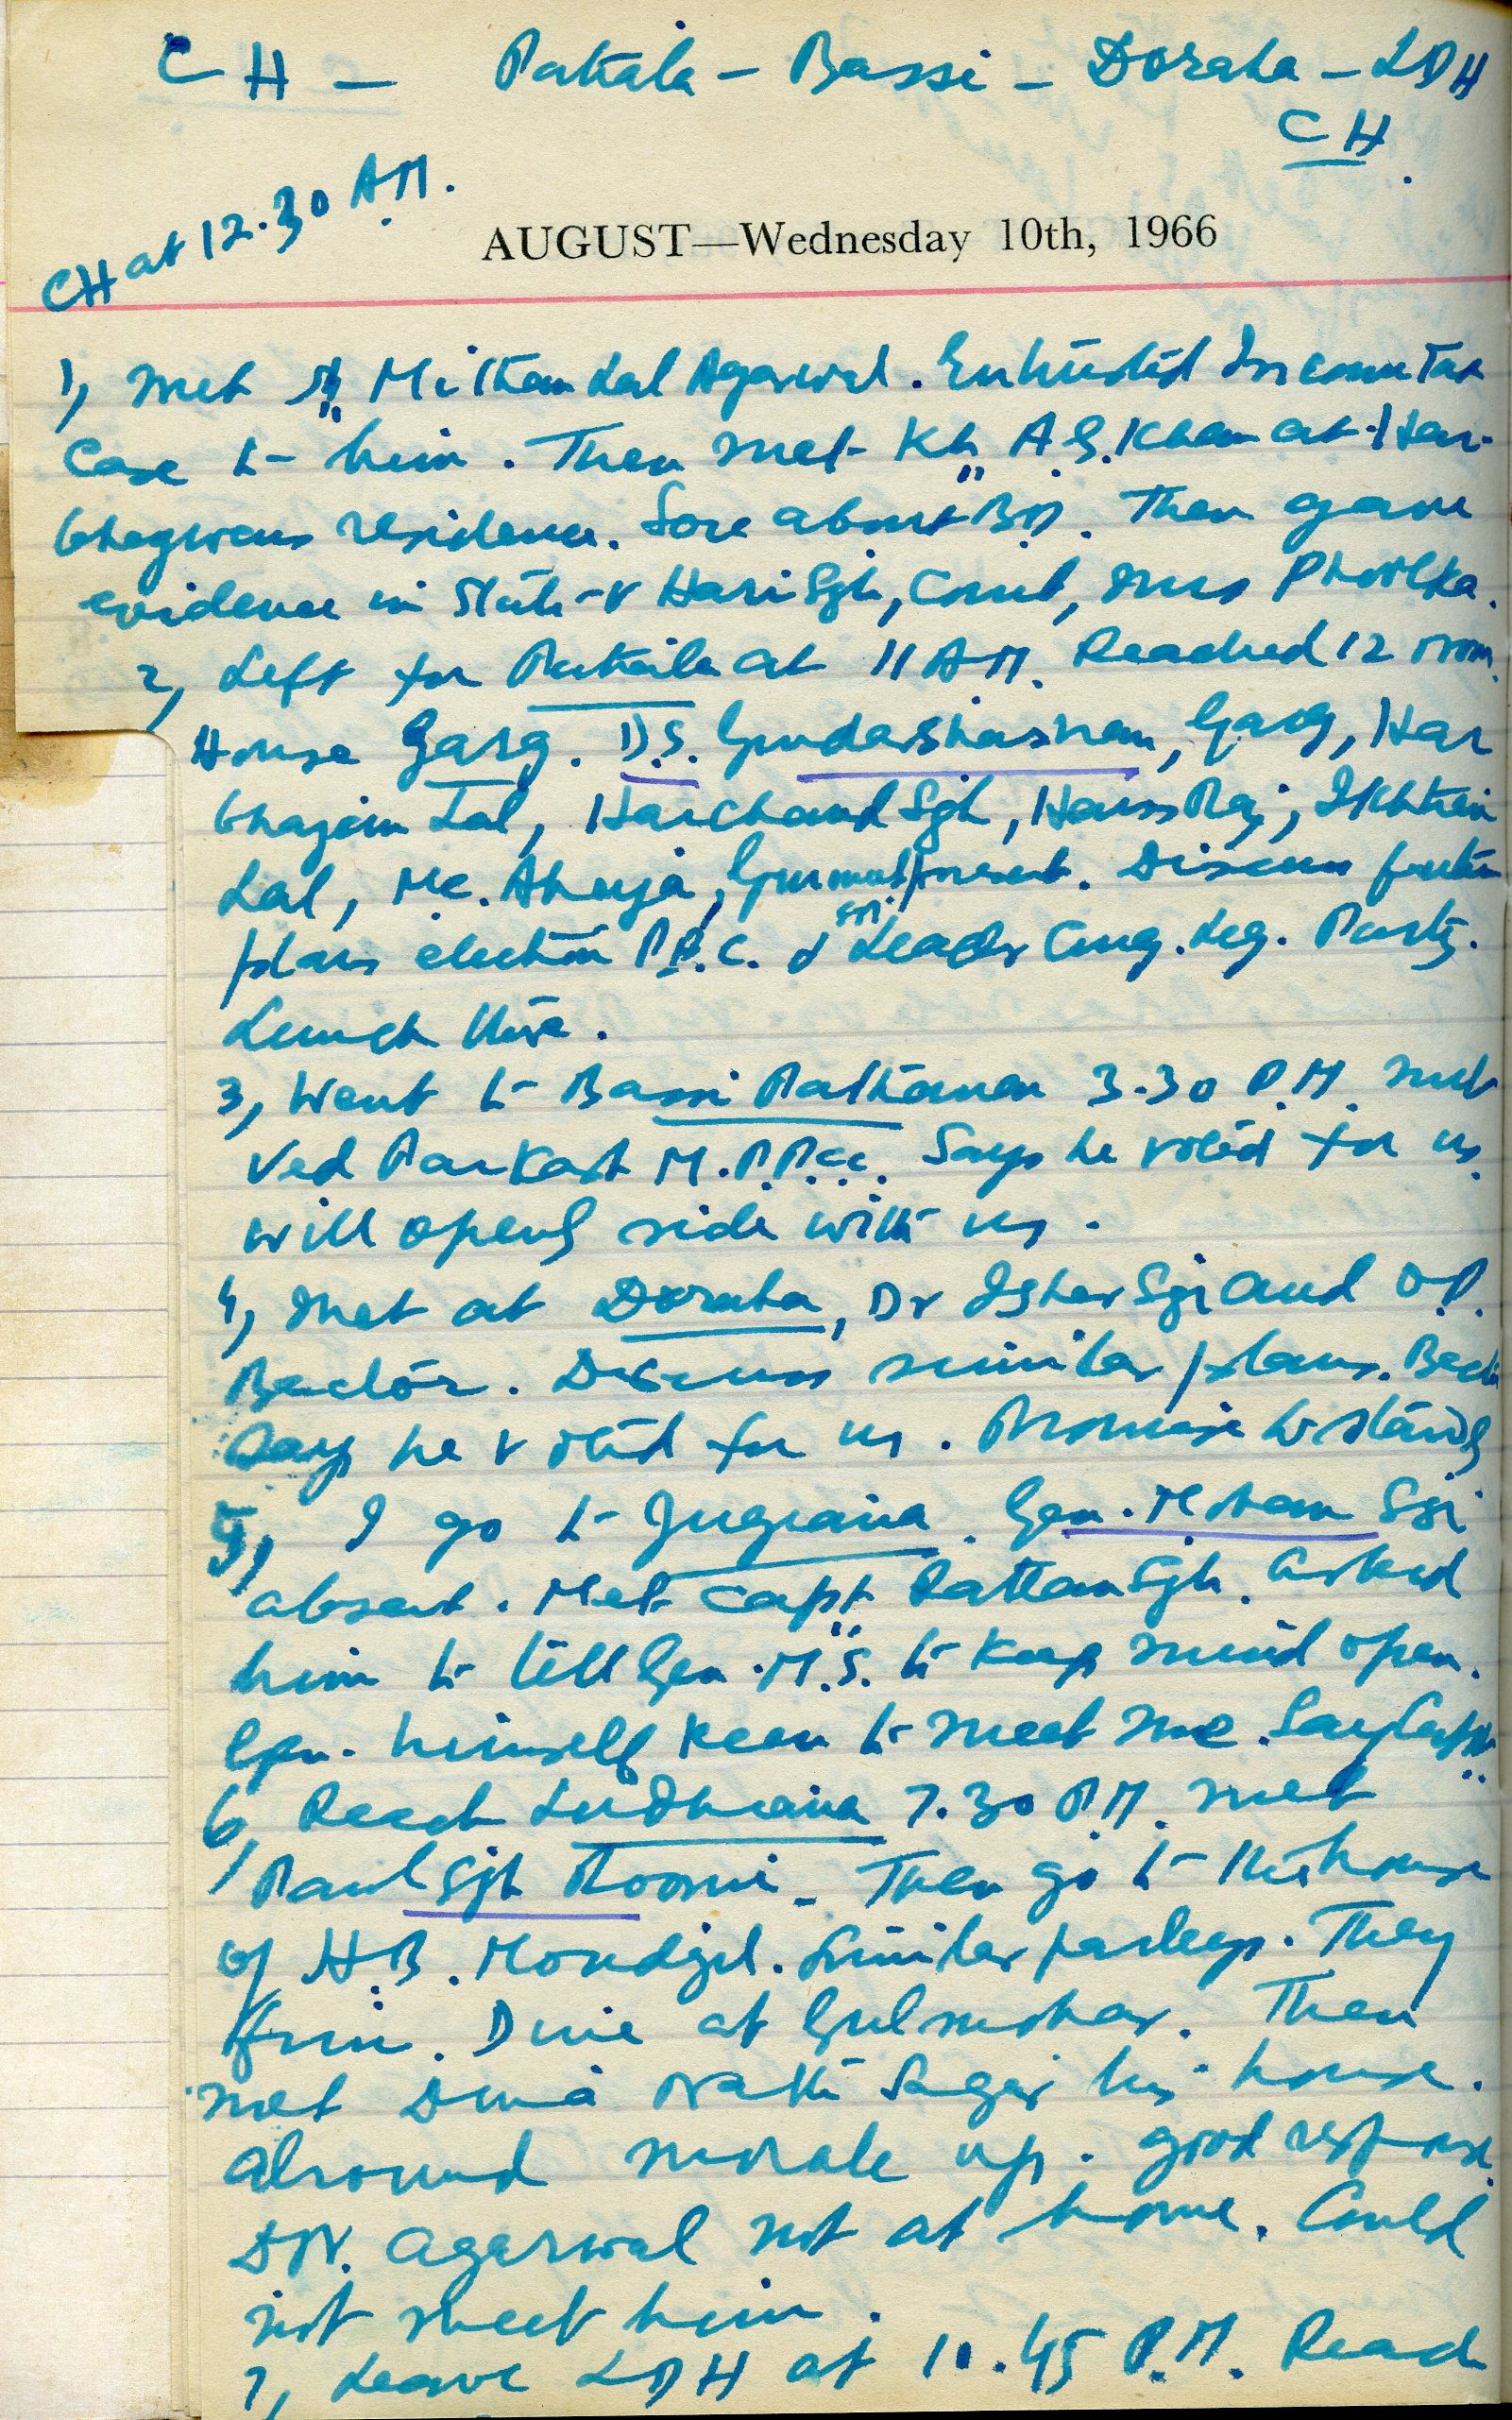 CH — Patiala — Bassi — Doraha — LDH
CH.
CH at 12.30 A.M.
AUGUST—Wednesday 10th, 1966
1, Met Sh Mithan Lal Agarwal. Entrusted Income Tax
Case to him. Then met Kh A.G. Khan at Har-
bhagwans residence. Sore about B.D. Then gave
evidence in State v Hari Sgh, Court, Miss Phoolka.
2, Left for Patiala at 11 AM. Reached 12 noon.
House Garg. D.S. Gurdarshasnam, Garg, Har
bhajan Lal, Harchand Sgh, Hans Raj,
Lal, Mc. Ahuja, Gurmat present. Discuss future
plans election P.P.C. & Leader Cong. Leg. Party.
Lunch there.
3, Went to Bassi Pathanan 3.30 P.M. met
Ved Parkash M.P.P.cc. Says he voted for us
will openly side with us.
4, Met at Doraha, Dr Isher Sgi and O.P.
Bector. Discuss similar plans.
Says he voted for us. Promise to stand by
5, I go to Jugiana. Gen. Mohan Sgi
absent. Met Capt Rattan Sgh. Asked
him to tell Gen. M.S. to keep mind open.
Gen. himself keen to meet me. Say Capt
6, Reach Ludhiana 7.30 PM. Met
Paul Sgh Roomi. Then go to the house
of H.B. Moudgil. Similar parleys. They
firm. Dine at Gulmohar. Then
met Dina Nath Sagar his house.
Alround morale up. good response.
D.N. Agarwal not at home. Could
not meet him.
7, Leave LDH at 10.45 P.M. Reach